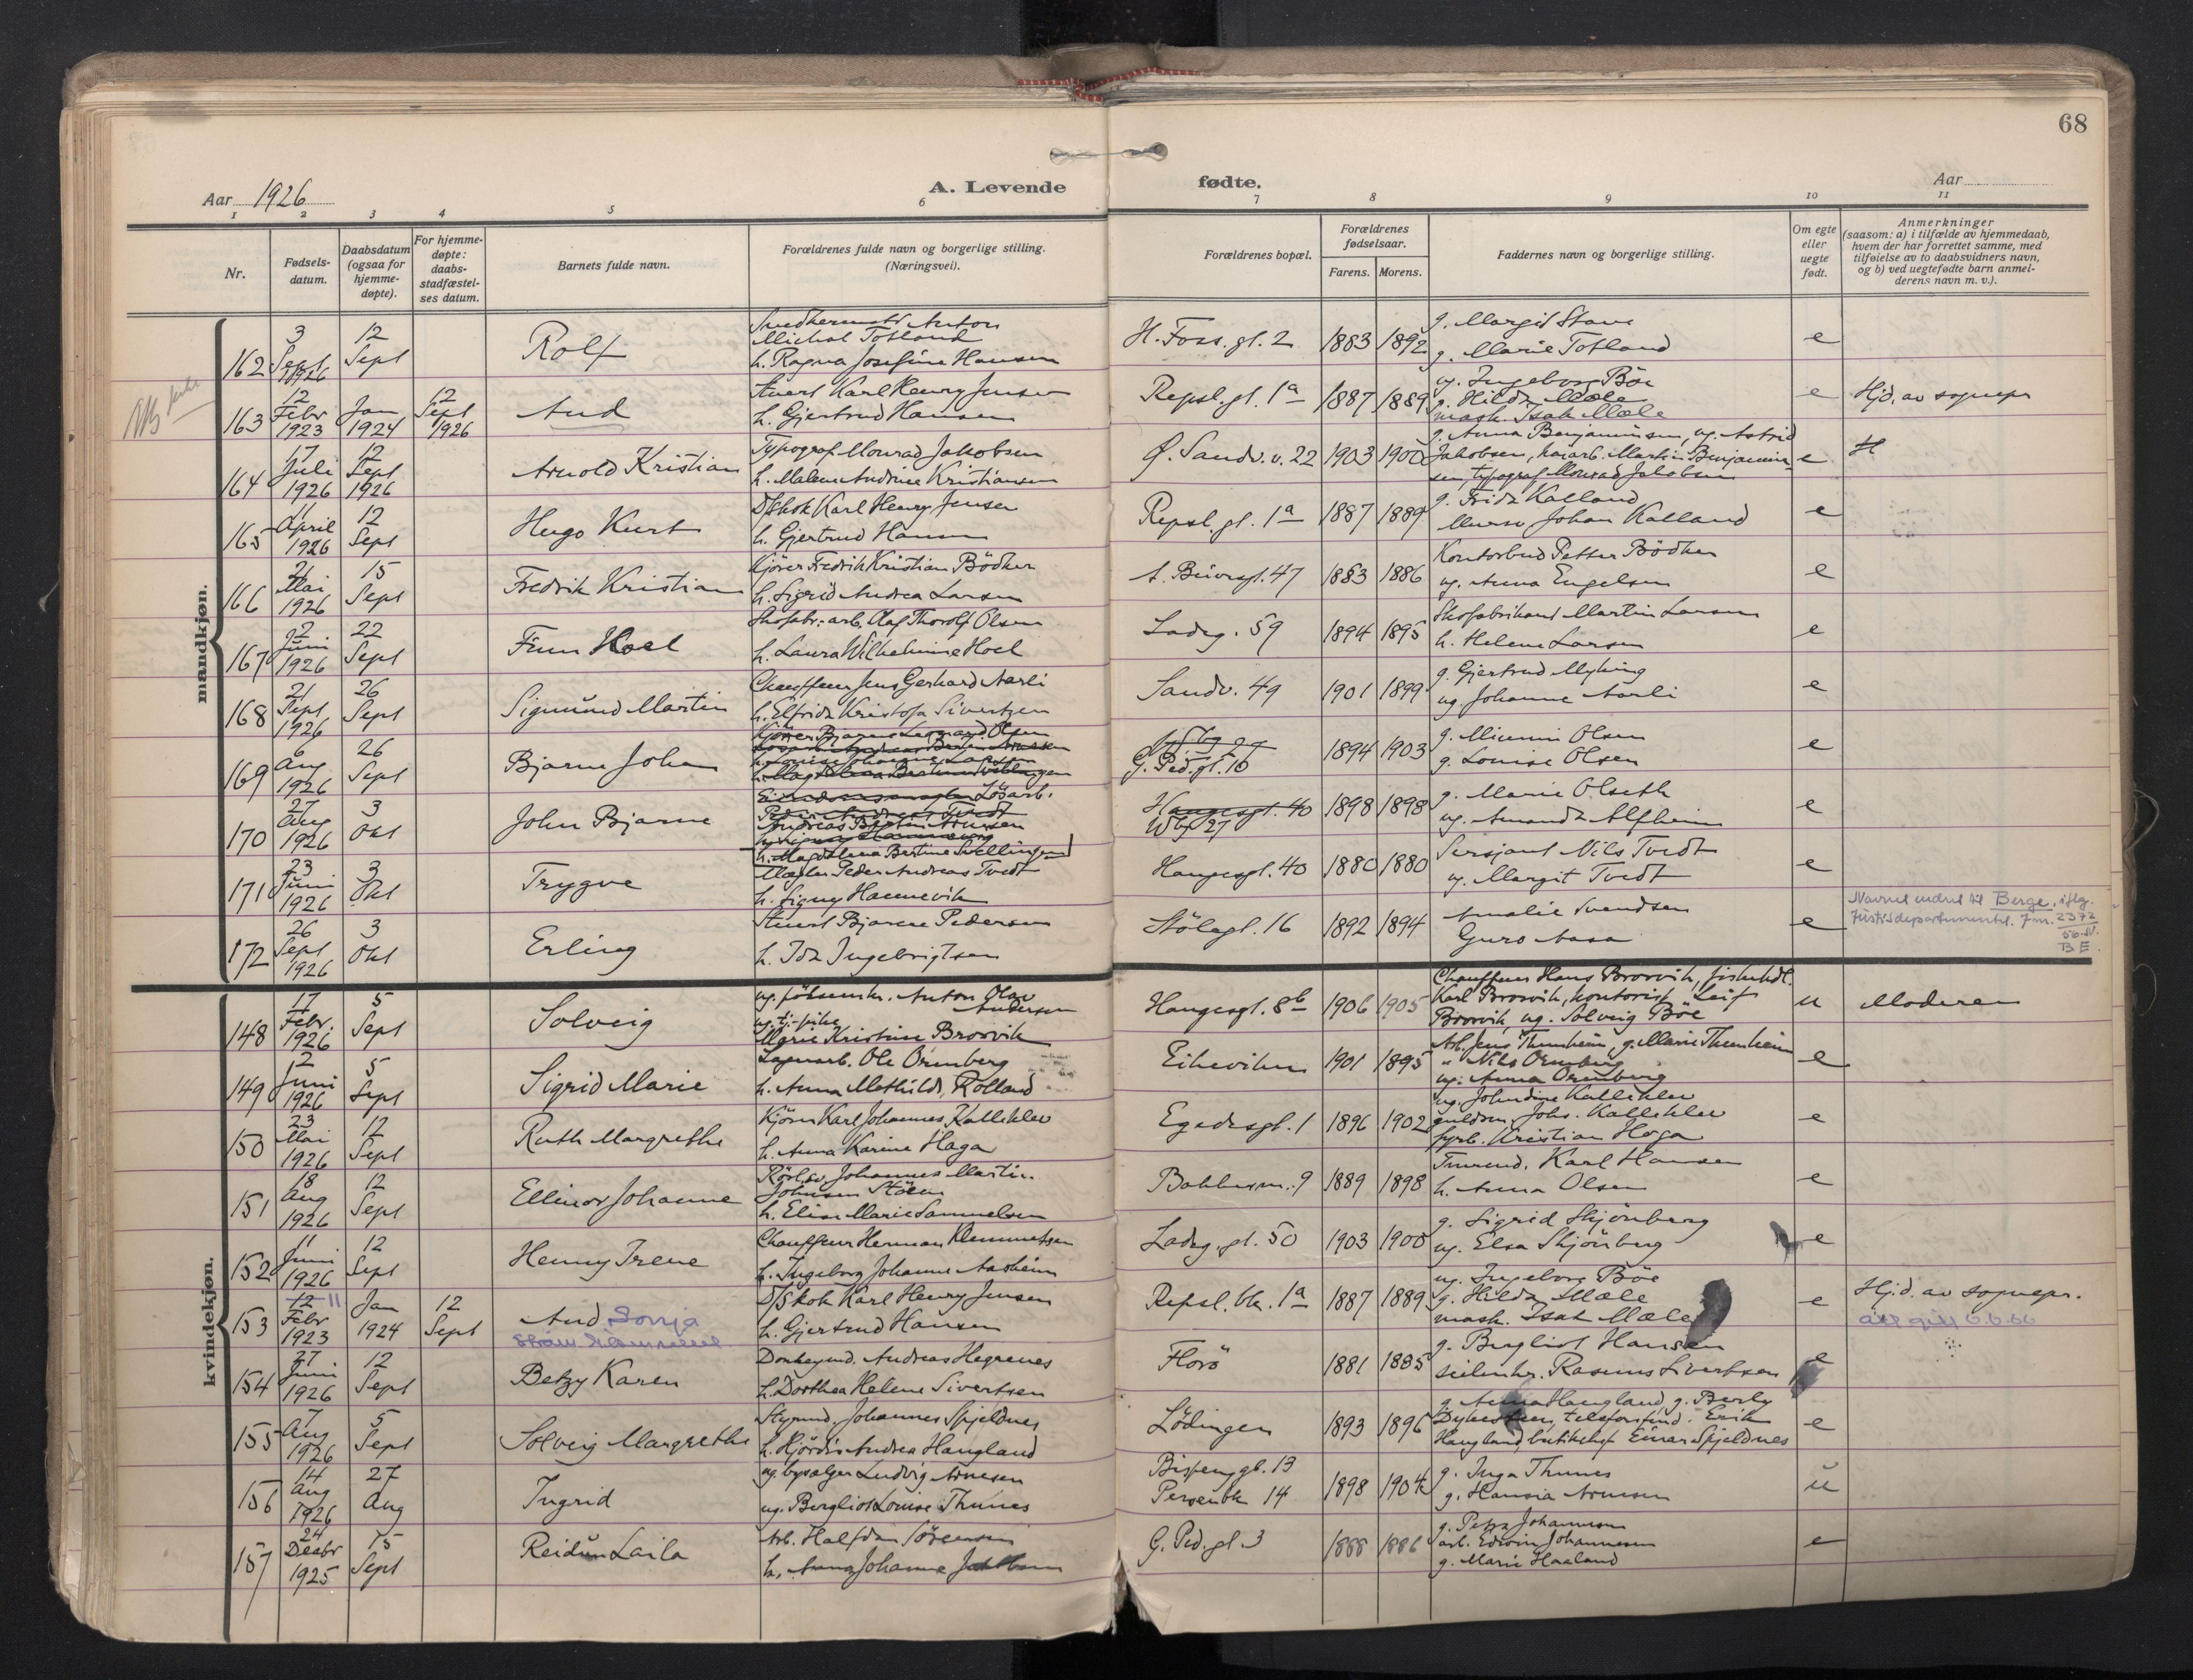 68
Aar 1926
A. Levende fødte.
Aar
1 2 3 4 5 6 7 8 9 10 11
Nr.
Fødsels-
datum.
Daabsdatum
(ogsaa for
hjemme-
døpte).
For hjemme-
døpte:
daabs-
stadfæstel-
ses datum.
Barnets fulde navn.
Forældrenes fulde navn og borgerlige stilling.
(Næringsvei).
Forældrenes bopæl.
Forældrenes
fødselsaar.
Farens. Morens.
Faddernes navn og borgerlige stilling.
Om egte
eller
uegte
født.
Anmerkninger
(saasom: a) i tilfælde av hjemmedaab,
hvem der har forrettet samme, med
tilføielse av to daabsvidners navn,
og b) ved uegtefødte barn anmel-
derens navn m. v.).
mandkjøn.
162 3 Sept 1926 12 Sept Rolf
Anton
Michal Totland
h. Ragna Josefine Hansen
H. Foss. gt. 2 1883 1892
g. Margit Stave
g. Marie Totland
e
NB
163 12 Febr 1923 Jan 1924 12 Sept 1926 Aud
Stuert Karl Henry Jensen
h. Gjertrud Hansen
Repsl. gt. 1a 1887 1889
ug. Ingeborg Böe
g. Hilda Mæle
mask. Isak Mæle
e Hjd. av sognepr
164 17 Juli 1926 12 Sept 1926 Arnold Kristian
Typograf Monrad Jakobsen
h. Malene Andrine Kristiansen
Ø. Sandv. v. 22 1903 1900
g. Anna Benjaminsen, ug. Astrid
Jakobsen, kaiarb. Martin Benjamin-
sen, typograf Monrad Jakobsen
e
165 11 April 1926 12 Sept Hugo Kurt
D/Skok Karl Henry Jensen
h. Gjertrud Hansen
Repsl. gt. 1a 1887 1889
g. Frida Kalland
Murer Johan Kalland
e
166 21 Mai 1926 15 Sept Fredrik Kristian
Kjörer Fredrik Kristian Bödker
h. Sigrid Andrea Larsen
47 1883 1886
Kontorbud Petter Bödker
ug. Anna Engelsen
e
167 Juni 1926 22 Sept Finn Hoel
Skofabr.-arb. Olaf Thorolf Olsen
h. Laura Wilhelmine Hoel
Ladeg. 59 1894 1895
Skofabrikant Martin Larsen
h. Helene Larsen
e
168 21 Sept 1926 26 Sept Sigmund Martin
Chauffeur Jens Gerhard Aarli
h. Elfrida Kristofa Sivertsen
Sandv. 49 1901 1899
g. Gjertrud Myking
ug Johanne Aarli
e
169 6 Aug 1926 26 Sept Bjarne Johan
Kjörer Bjarne Leonard Olsen
G. Ped. gt. 10 1894 1903
g. Minnie Olsen
g. Louise Olsen
e
170 27 Aug 1926 3 Okt John Bjarne
Lösarb.
Andreas Bertin Arnesen
h. Magdalena Bertine Svellingen
Haugesgt. 40
27
1898 1898
g. Marie Olseth
ug. Amanda Alfheim
e
171 23 Juni 1926 3 Okt Trygve
Mægler Peder Andreas Tvedt
h. Signy Hannevik
Haugesgt. 40 1880 1880
Sersjant Nils Tvedt
ug. Margit Tvedt
e
172 26 Sept 1926 3 Okt Erling
Stuert Bjarne Pedersen
h. Ida Ingebrigtsen
Stölegt. 16 1892 1894
Amalie Svendsen
Guro Aasa
e
Navnet endret til Berge, iflg.
Justisdepartementet. Jnr. 2372
56.
B E.
kvindekjøn.
148 17 Febr 1926 5 Sept Solveig
ug. Anton Olav
Andersen
ug. tj.-pike
Marie Kristine Brosvik
Haugesgt. 8b 1906 1905
Chauffeur Hans Brosvik, fiskehdl.
Karl Brosvik, kontorist Leif
Brosvik, ug. Solveig Böe
u Moderen
149 2 Juni 1926 5 Sept Sigrid Marie
Lagerarb. Ole Ormberg
h. Anna Mathilde Rolland
Eikeviken 1901 1895
Arb. Jens Thunheim, g. Marie Thunheim
" Nils Ormberg
ug. Anna Ormberg
e
150 23 Mai 1926 12 Sept Ruth Margrethe
Kjörer Karl Johannes Kalleklev
h. Anna Karine Haga
Egedesgt. 1 1896 1902
ug. Johndine Kalleklev
guldsm. Johs. Kalleklev
fyrb. Kristian Haga
e
151 18 Aug 1926 12 Sept Ellinor Johanne
Rörl.sv. Johannes Martin
Johnsen Stöen
h. Elise Marie Samuelsen
9 1889 1898
Karl Hansen
h. Anna Olsen
e
152 11 Juni 1926 12 Sept Henny Irene
Chauffeur Herman Klemmetsen
h. Ingeborg Johanne Aasheim
Ladeg. gt. 50 1903 1900
g. Sigrid Skjönberg
ug. Elsa Skjönberg
e
153 12 11 Febr 1923 Jan 1924 12 Sept Aud Sonja
D/Skok Karl Henry Jensen
h. Gjertrud Hansen
Repsl. bk. 1a 1887 1889
ug. Ingeborg Böe
g. Hilda Mæle
mask. Isak Mæle
e Hjd. av sognepr.
6.6.66
154 27 Juni 1926 12 Sept Betzy Karen
Donkeymd. Andreas Hegrenes
h. Dorthea Helene Sivertsen
Florö 1881 1885
g. Bergliot Hansen
seilmkr. Rasmus Sivertsen
e
155 7 Aug 1926 5 Sept Solveig Margrethe
Styrmd. Johannes Spjeldnes
h. Hjördis Andrea Haugland
Lödingen 1893 1896
g. Anna Haugland, g. Berly
Dykesteen, telefonfmd. Erik
Haugland, butikchef Einar Spjeldnes
e
156 14 Aug 1926 27 Aug Ingrid
ug. bysælger Ludvig Arnesen
ug. Bergliot Louise Thunes
Bispengt. 13
Persenbk 14
1898 1904
g. Inga Thunes
g. Hansia Arnesen
u
157 24 Decbr 1925 15 Sept Reidun Laila
Arb. Halfdan Sörensen
h. Anna Johanne Jakobsen
G. Ped. gt 3 1888 1886
g. Petra Johannesen
arb. Edwin Johannesen
g. Marie Haaland
e